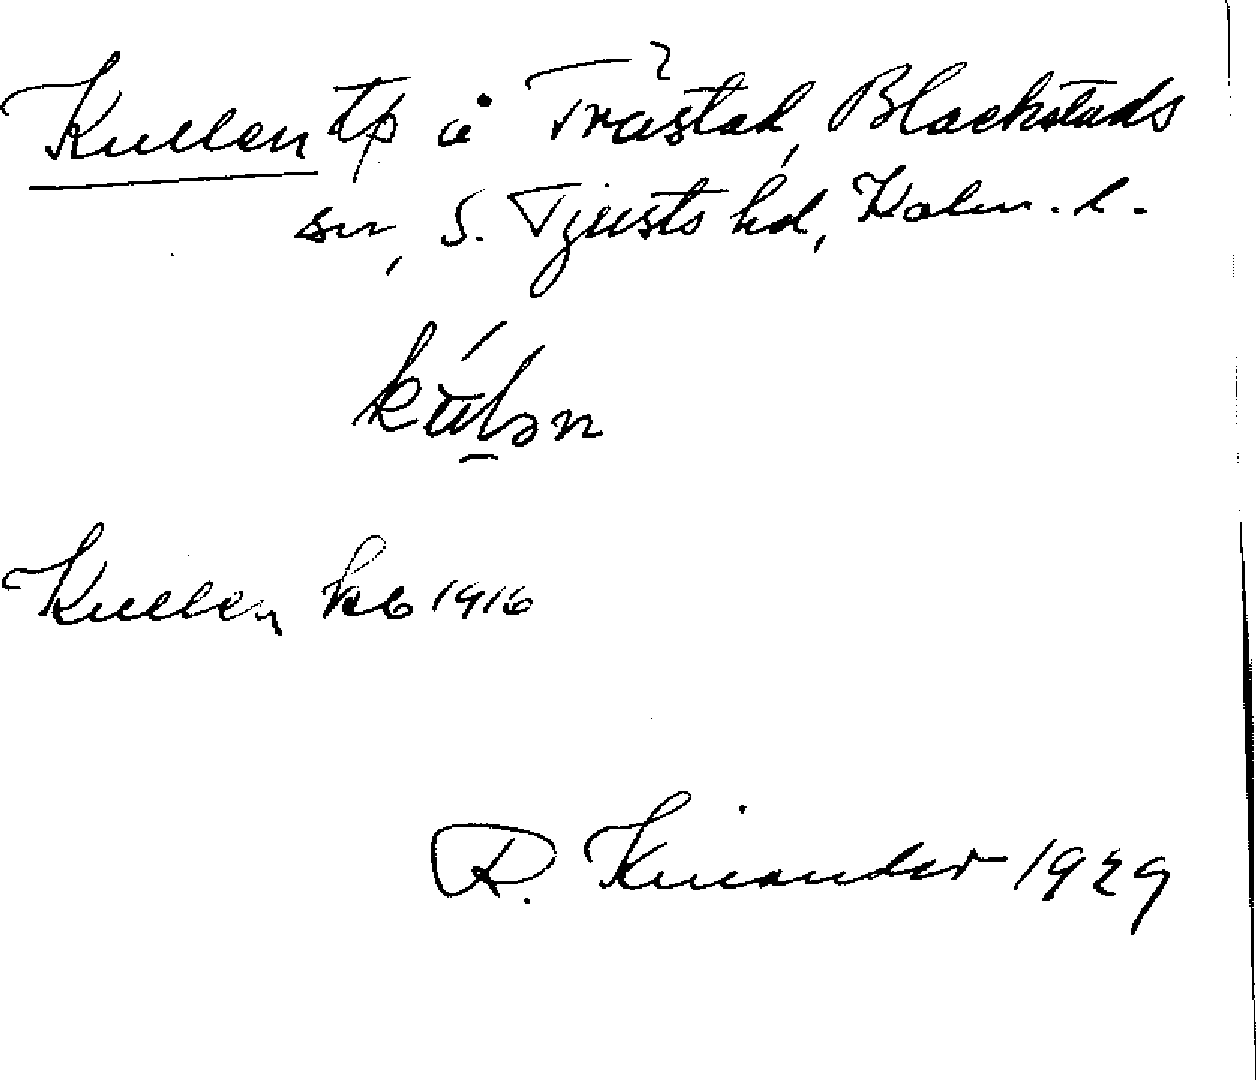 Kullen tp å Tråstad, Blackstads
sn, S. Tjusts hd, Kalm. l.
Kullen kb 1916
R. Kinander 1929